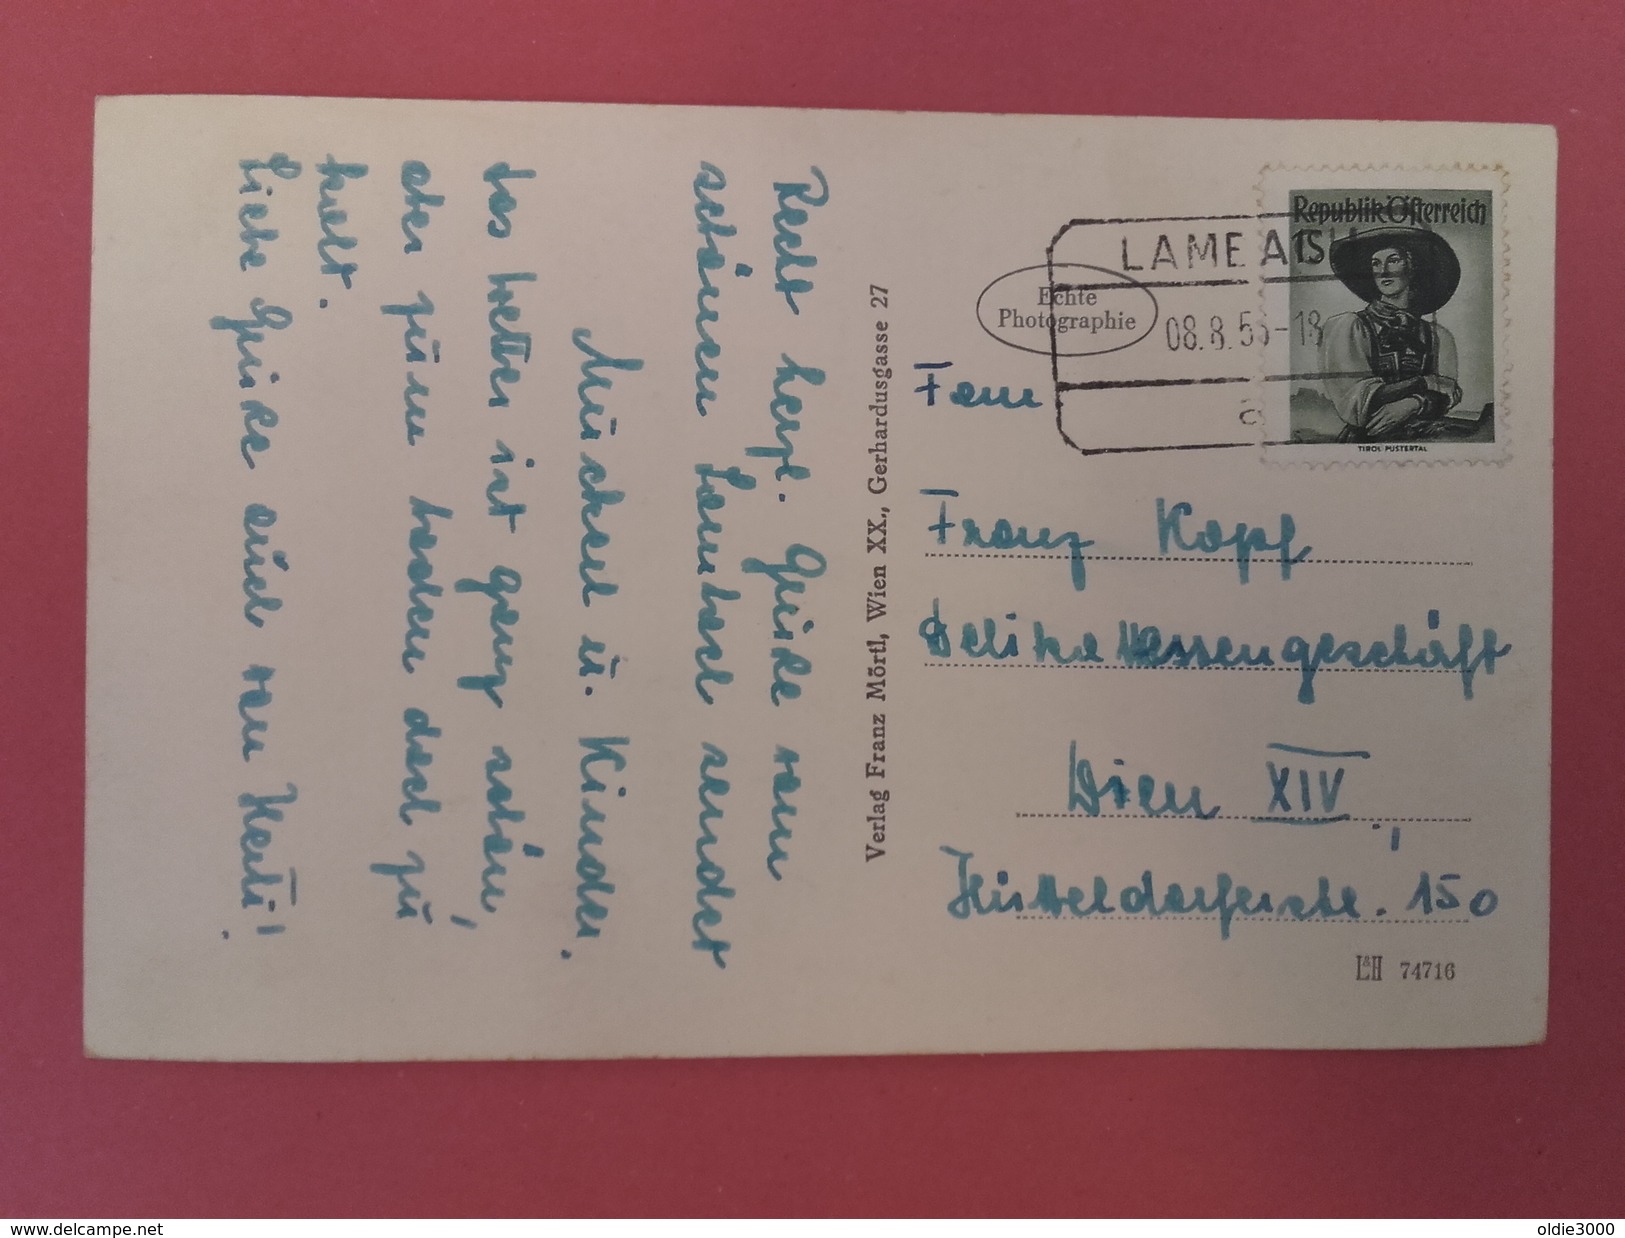 Recht herzl. Grüße vom
schönen Lambach sendet
Mischel u. Kinder.
das Wetter ist ganz schön,
aber zum baden doch zu
kalt.
Liebe Grüße auch von Herti!
Verlag Franz Mörtl, Wien XX., Gerhardusgasse 27
Echte
Photographie
08.8.5 -18
a
Republik Österreich
1S
TIROL-PUSTERTAL
Fam
Franz Kopf
Delikatessengeschäft
Wien XIV,
Hütteldorferstr. 150
L&H 74716
www.delcampe.net
oldie3000